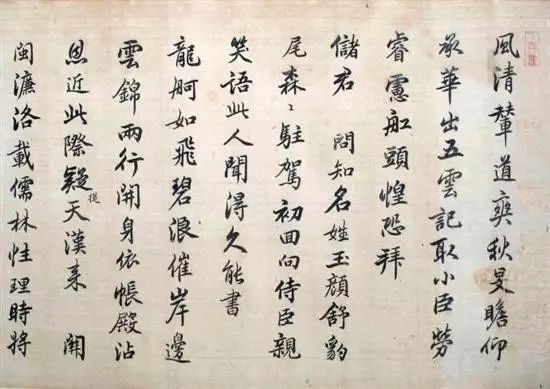 風清輦道爽秋旻瞻仰
承華出五雲記取小臣勞
睿慮舡頭惶恐拜
儲君 問知名姓玉顏舒豹
尾森〻駐駕初回向侍臣親
笑語此人聞得久能書
龍舸如飛碧浪催岸邊
雲錦兩行開身依帳殿沾
恩近此際疑從天漢來 關
閩濂洛載儒林性理時將